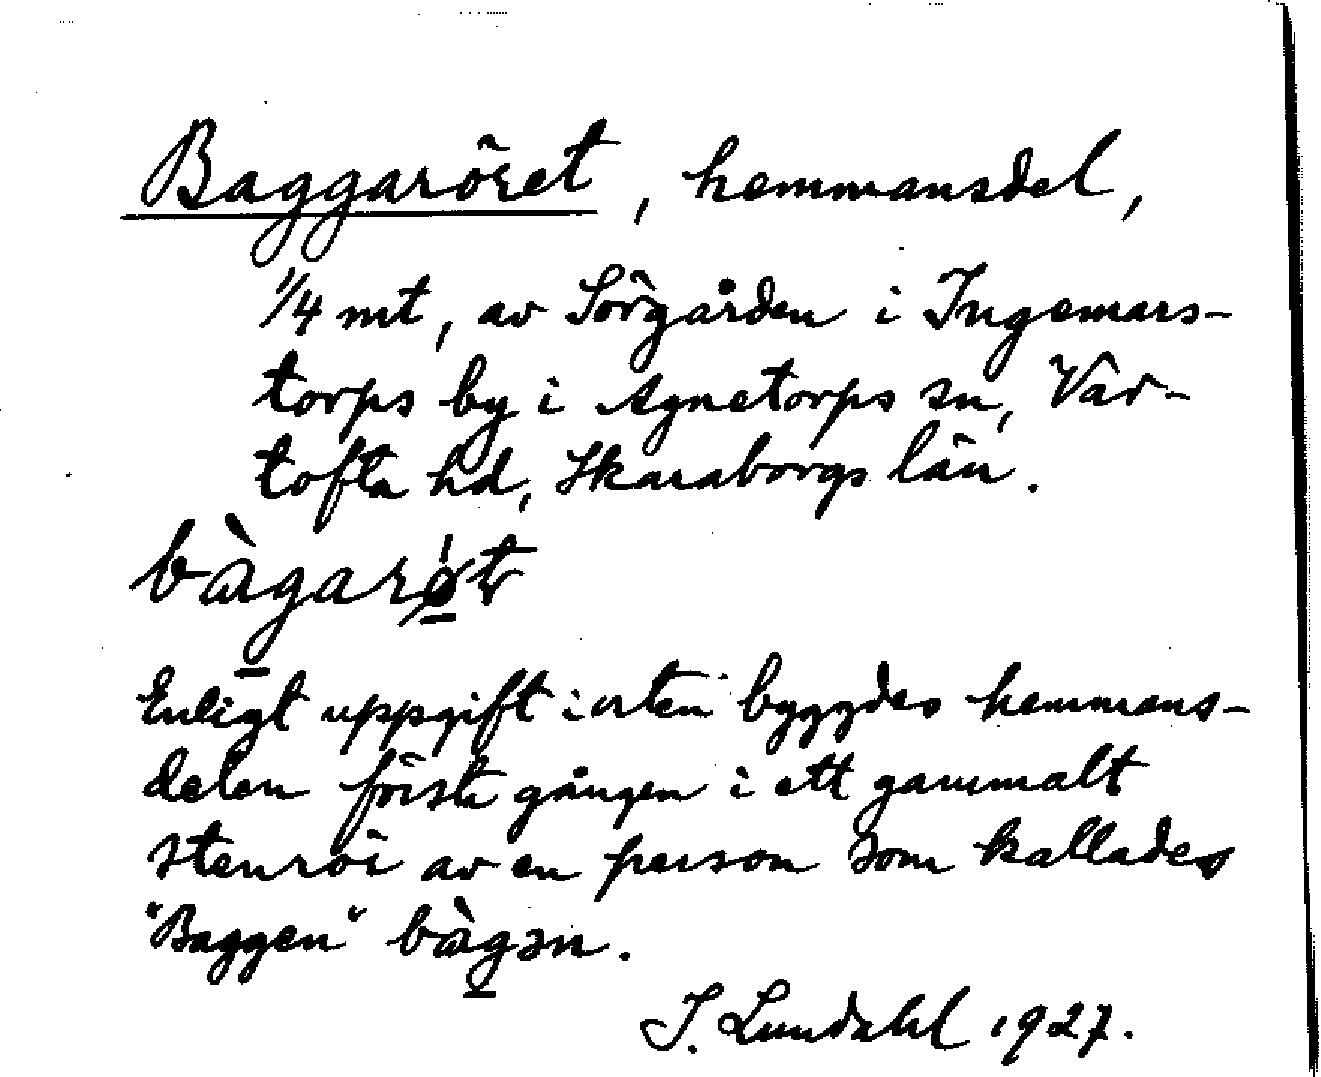 Baggaröret, hemmansdel,
1/4 mt, av Sörgården i Ingemars-
torps by i Agnetorps sn, Var-
tofta hd, Skaraborgs län.
bàgarǿ̲t
Enligt uppgift i orten byggdes hemmans-
delen första gången i ett gammalt
stenrör av en person som kallades
"Baggen" bàg̲ən.
J. Lundahl 1927.